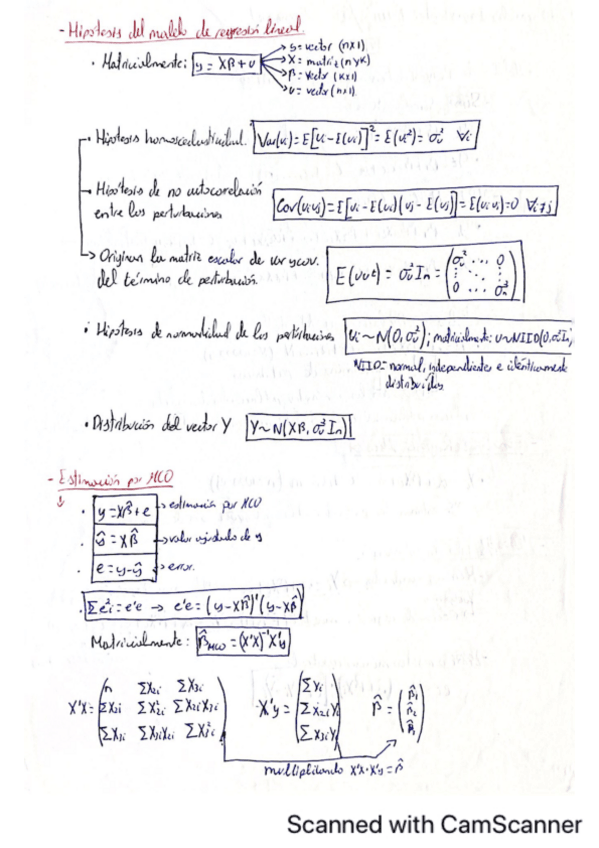 - Hipótesis del modelo de regresión lineal.
· Matricialmente: y = Xβ + u
→ y = vector (nx1)
→ X = matriz (nxk)
→ β = vector (kx1)
→ u = vector (nx1)
→ Hipótesis homocedasticidad. Var(ui) = E[ui - E(ui)]² = E(ui²) = σu² ∀i
→ Hipótesis de no autocorrelación Cov(ui uj) = E[ui - E(ui)(uj - E(uj)] = E(ui uj) = 0 ∀i≠j
entre las perturbaciones
→ Originan la matriz escalar de var y cov. E(uut) = σu² In = (σu² ... 0 ⋮ ⋱ ⋮ 0 ... σu²)
del término de perturbación.
· Hipótesis de normalidad de las perturbaciones ui ~ N(0, σu²); matricialmente: u ~ NIID(0, σu² In)
NIID = normal, independientes e idénticamente
distribuidas
· Distribución del vector Y Y ~ N(Xβ, σu² In)
- Estimación por MCO
· y = Xβ̂ + e → estimación por MCO
· ŷ = Xβ̂ → valor ajustado de y
· e = y - ŷ → error.
· Σei² = e'e → e'e = (y - Xβ̂)'(y - Xβ̂)
Matricialmente: β̂MCO = (X'X)⁻¹X'y
X'X = (n ΣX2i ΣX3i
ΣX2i ΣX2i² ΣX2iX3i
ΣX3i ΣX3iX2i ΣX3i²)
X'y = (ΣYi
ΣX2iYi
ΣX3iYi)
β̂ = (β̂1
β̂2
β̂3)
multiplicando X'X · X'y = β̂
Scanned with CamScanner